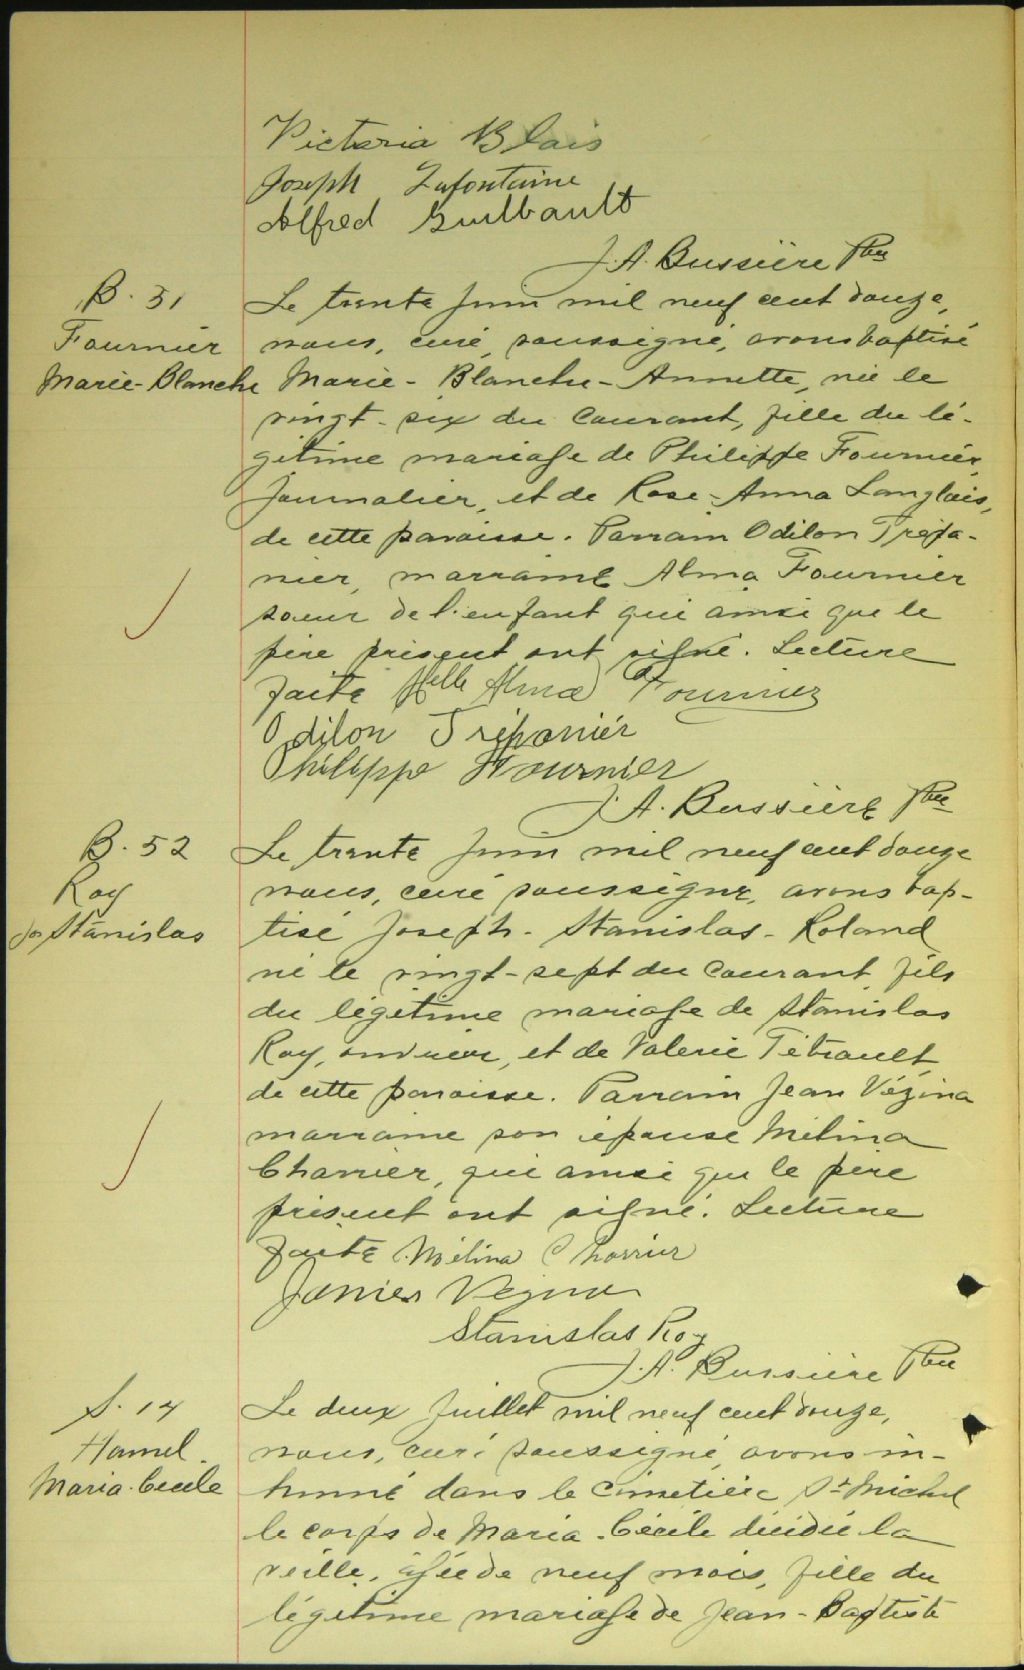 Victoria Blais
Joseph Lafontaine
Alfred Guilbault
J. A. Bussière Ptre
B. 51
Fournier
Marie-Blanche
Le trente juin mil neuf cent douze,
nous, curé, soussigné, avons baptisé
Marie-Blanche-Annette, née le
vingt-six du courant, fille du lé-
gitime mariage de Philippe Fournier,
journalier, et de Rose-Anna Langlais,
de cette paroisse. Parrain Odilon Trépa-
nier, marraine Alma Fournier
soeur de l'enfant qui ainsi que le
père présent ont signé. Lecture
faite Melle Alma Fournier
Odilon Trépanier
Philippe Fournier
J. A. Bussière Ptre
B. 52
Roy
Jos Stanislas
Le trente juin mil neuf cent douze
nous, curé soussigné, avons bap-
tisé Joseph-Stanislas-Roland
né le vingt-sept du courant, fils
du légitime mariage de Stanislas
Roy, ouvrier, et de Valerie Tétrault
de cette paroisse. Parrain Jean Vézina
marraine son épouse Mélina
Charrier, qui ainsi que le père
présent ont signé. Lecture
faite Mélina Charrier
Vézina
Stanislas Roy
J. A. Bussière Ptre
S. 14
Hamel
Maria-Cécile
Le deux juillet mil neuf cent douze,
nous, curé soussigné, avons in-
humé dans le cimetière St-Michel
le corps de Maria-Cécile décédée la
veille, âgée de neuf mois, fille du
légitime mariage de Jean-Baptiste